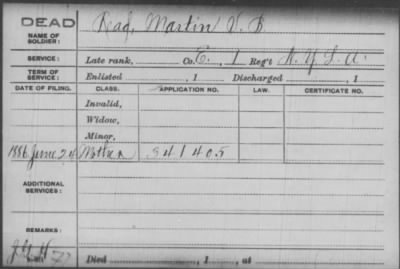 DEAD
NAME OF SOLDIER: Read, Martin V. B.
SERVICE: Late rank, Co. E, 1 Reg't N. Y. L. A.
TERM OF SERVICE: Enlisted , 1 Discharged , 1
DATE OF FILING. CLASS. APPLICATION NO. LAW. CERTIFICATE NO.
Invalid,
Widow,
Minor,
1886 June 24 Mother 341405
ADDITIONAL SERVICES:
REMARKS:
Died , 1 , at